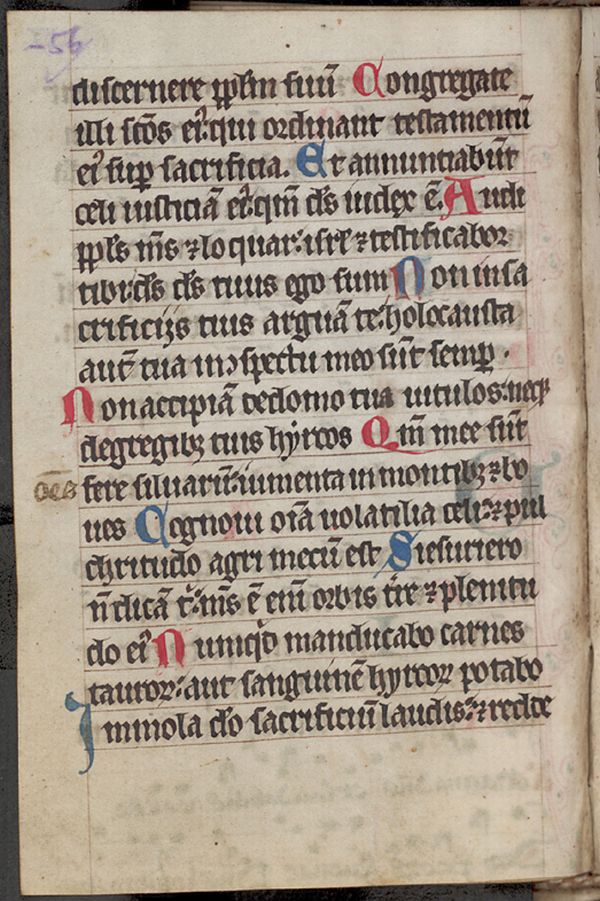 -56
discernere pplm suū Congregate
illi scōs eı᷒:qui ordinant testamentū
eı᷒ sup̄ sacrificia. Et annuntiabūt
celi iusticiā eı᷒:qm̄ ds̄ iudex ē. Audi
ppls m̄s ⁊ loquar:isrl̄ ⁊ testificabor
tibi:ds̄ ds̄ tuus ego sum Non in sa
crificijs tuis arguā te:holocausta
aut̄ tua in ↄspectu meo sūt semp̄.
Non accipiā de domo tua uitulos:neqꝫ
de gregibꝫ tuis hyrcos Qm̄ mee sūt
oēs fere siluarū:iumenta in montibꝫ ⁊ bo
ues Cognoui oīa uolatilia celi:⁊ pul
chritudo agri mecū est Si esuriero
n̄ dicā t᷒:m̄s ē eni orbis tr̄e ⁊ plenitu
do eı᷒ Nunqd̄ manducabo carnes
tauroꝝ:aut sanguinē hyrcoꝝ potabo
Immola dō sacrificiū laudis:⁊ redde